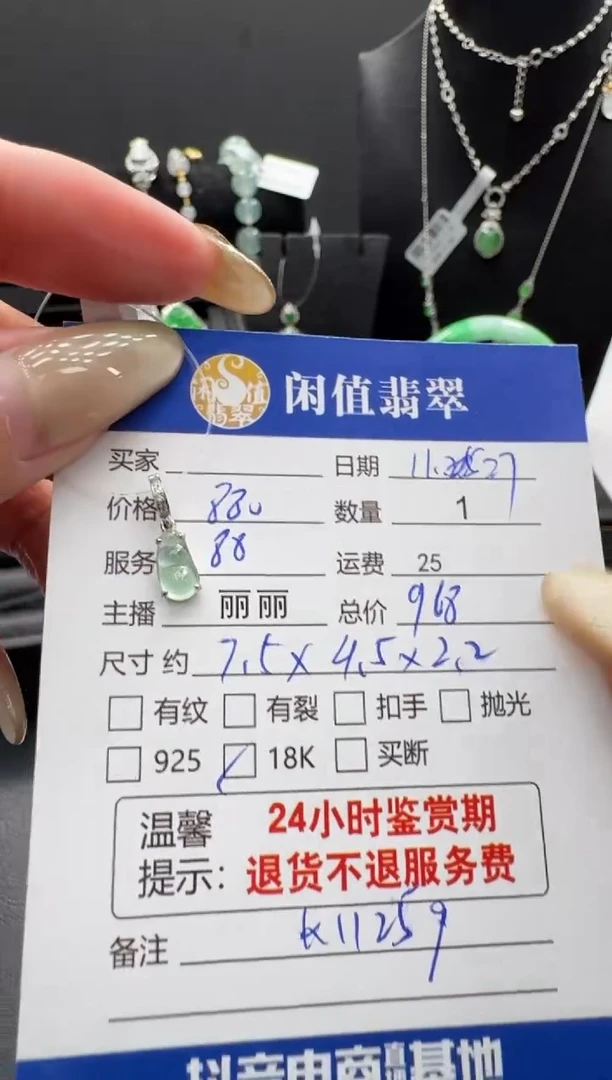 闲值翡翠
闲值翡翠
买家 日期 11.27
价格 880 数量 1
服务 88 运费 25
主播 丽丽 总价 968
尺寸 约 7.5×4.5×2.2
有纹 有裂 扣手 抛光
925 18K 买断
温馨 24小时鉴赏期
提示: 退货不退服务费
备注 K11259
抖音电商直播基地